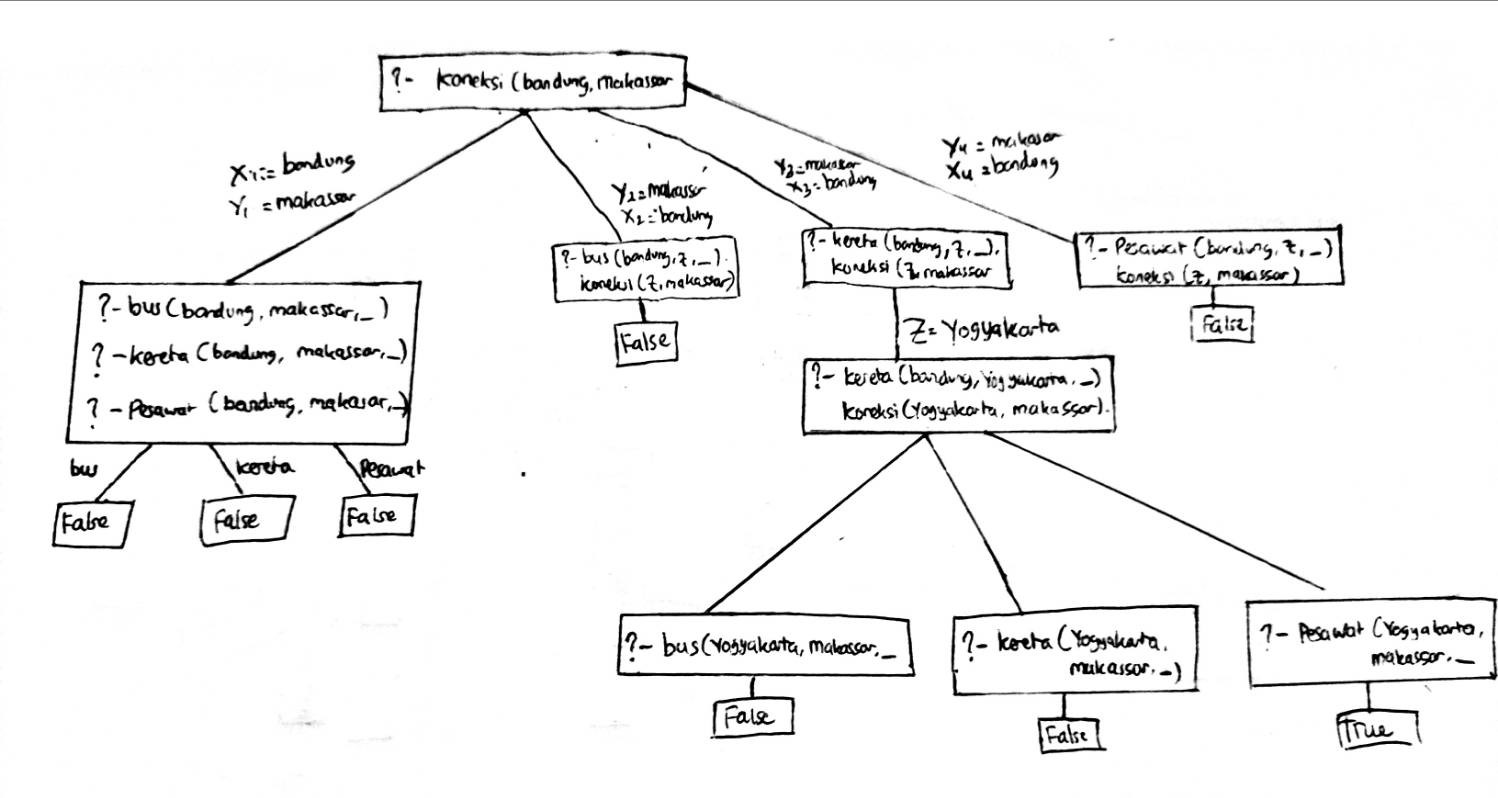 ?- koneksi (bandung, makassar
X1 = bandung
Y1 = makassar
Y2 = makassar
X2 = bandung
Y3 = makassar
X3 = bandung
Y4 = makasar
X4 = bandung
?- bus (bandung, makassar, _)
?- kereta (bandung, makassar, _)
?- Pesawat (bandung, makasar, _)
bus
kereta
Pesawat
False
False
False
?- bus (bandung, z, _).
koneksi (z, makassar)
False
?- kereta (bandung, z, _).
koneksi (z, makassar
Z = Yogyakarta
?- kereta (bandung, Yogyakarta, _)
koneksi (Yogyakarta, makassar).
?- Pesawat (bandung, z, _)
koneksi (z, makassar)
False
?- bus (Yogyakarta, makassar, _
False
?- kereta (Yogyakarta,
makassar, _)
False
?- Pesawat (Yogyakarta,
makassar, _
True